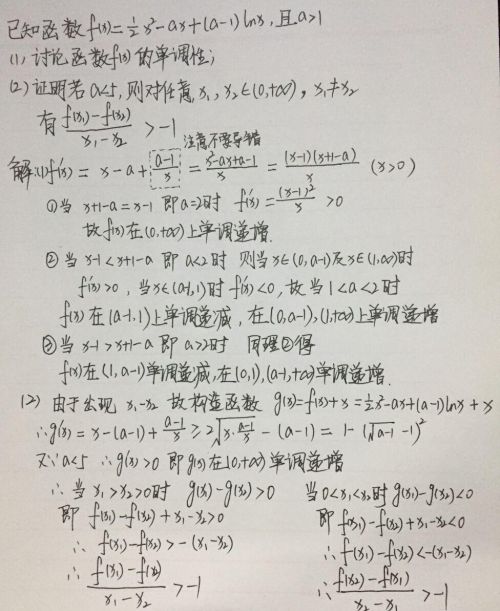 已知函数f(x)=½x²-ax+(a-1)lnx,且a>1
(1),讨论函数f(x)的单调性;
(2)证明若a<5,则对任意x₁,x₂∈(0,+∞),x₁≠x₂
有 (f(x₁)-f(x₂))/(x₁-x₂) >-1
注意不要导错
解:(1)f'(x)= x-a+(a-1)/x = (x²-ax+a-1)/x = (x-1)(x+1-a)/x (x>0)
①当 x+1-a=x-1 即a=2时 f'(x)=(x-1)²/x >0
故f(x)在(0,+∞)上单调递增.
②当 x-1<x+1-a 即a<2时 则当x∈(0,a-1)及x∈(1,∞)时
f'(x)>0,当x∈(a-1,1)时f'(x)<0,故当1<a<2时
f(x)在(a-1,1)上单调递减,在(0,a-1),(1,+∞)上单调递增
③当x-1>x+1-a 即a>2时 同理②得
f(x)在(1,a-1)单调递减,在(0,1),(a-1,+∞)单调递增.
(2) 由于出现 x₁-x₂ 故构造函数 g(x)=f(x)+x=½x²-ax+(a-1)lnx+x
∴g'(x)= x-(a-1)+(a-1)/x ≥2√(x·(a-1)/x) -(a-1)= 1-(√(a-1)-1)²
又∵a<5 ∴g'(x)>0 即g(x)在(0,+∞)单调递增
∴当x₁>x₂>0时 g(x)-g(x₂)>0 当0<x₁<x₂时g(x₁)-g(x₂)<0
即 f(x₁)-f(x₂)+x₁-x₂>0 即f(x₁)-f(x₂)+x₁-x₂<0
∴ f(x₁)-f(x₂)>-(x₁-x₂) ∴f(x₁)-f(x₂)<-(x₁-x₂)
∴ (f(x₁)-f(x₂))/(x₁-x₂) >-1 ∴ (f(x₂)-f(x₁))/(x₂-x₁) >-1